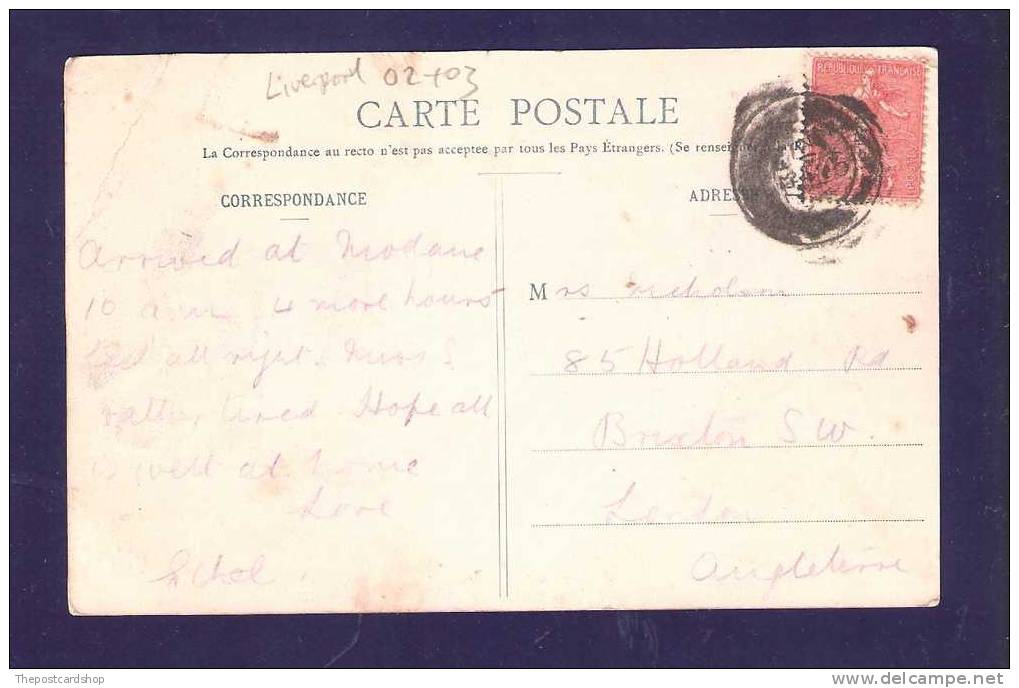 Liverpool 02+03
REPUBLIQUE FRANÇAISE
CARTE POSTALE
La Correspondance au recto n'est pas acceptee par tous les Pays Étrangers. (Se renseig
CORRESPONDANCE
ADRESS
Arrived at Modane
10 a.m 4 more hours
all right. Miss S
rather tired Hope all
is well at home
Love
Ethel
Mrs Nicholson
85 Holland Rd
Brixton S W.
London
Angleterre
Thepostcardshop
delcampe.net